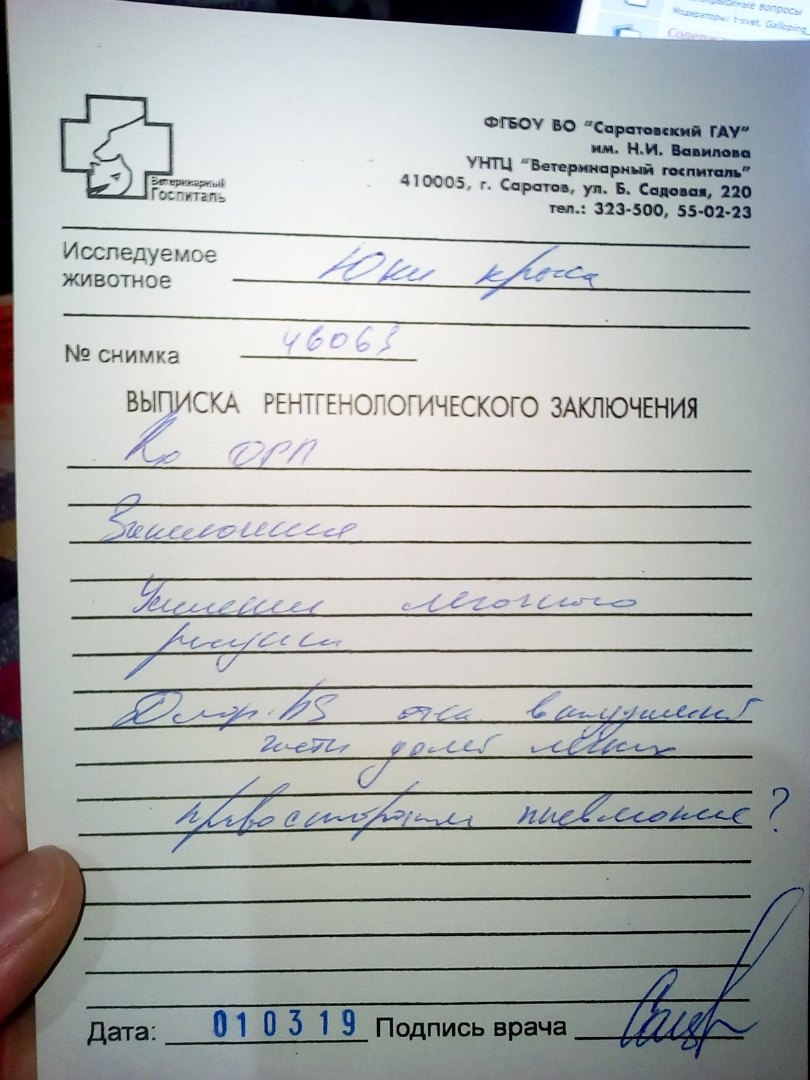 крысиные вопросы
Модераторы: t-svet, Galloping_
Ветеринарный
Госпиталь
ФГБОУ ВО "Саратовский ГАУ"
им. Н.И. Вавилова
УНТЦ "Ветеринарный госпиталь"
410005, г. Саратов, ул. Б. Садовая, 220
тел.: 323-500, 55-02-23
Исследуемое
животное Юки крыса
№ снимка 48063
ВЫПИСКА РЕНТГЕНОЛОГИЧЕСКОГО ЗАКЛЮЧЕНИЯ
ОРП
Заключение
Усиление легочного
рисунка
части долей легких
правосторонняя пневмония?
Дата: 010319 Подпись врача